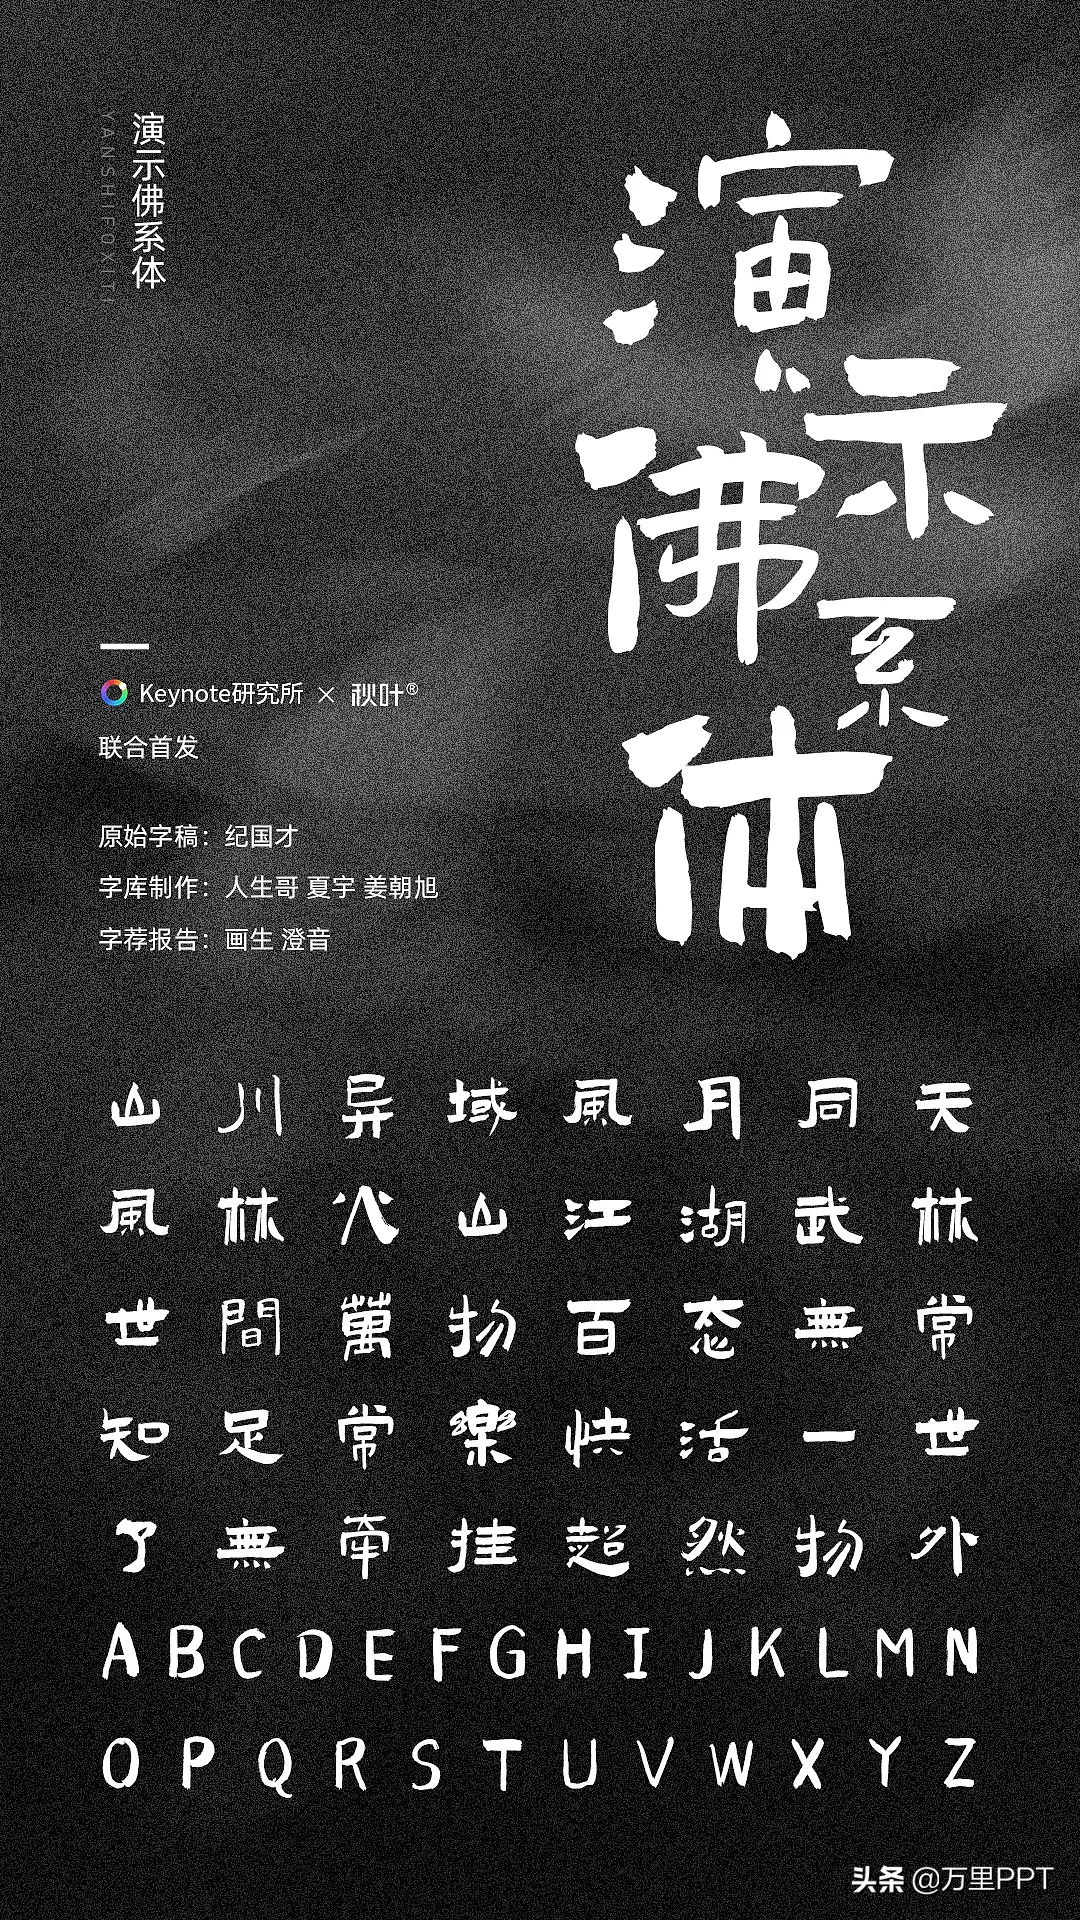 演示佛系体
YANSHIFOXITI
演示佛系体
Keynote研究所 × 秋叶®
联合首发
原始字稿：纪国才
字库制作：人生哥 夏宇 姜朝旭
字荐报告：画生 澄音
山川异域風月同天
風林火山江湖武林
世間萬物百态無常
知足常樂快活一世
了無牵挂超然物外
ABCDEFGHIJKLMN
OPQRSTUVWXYZ
头条 @万里PPT